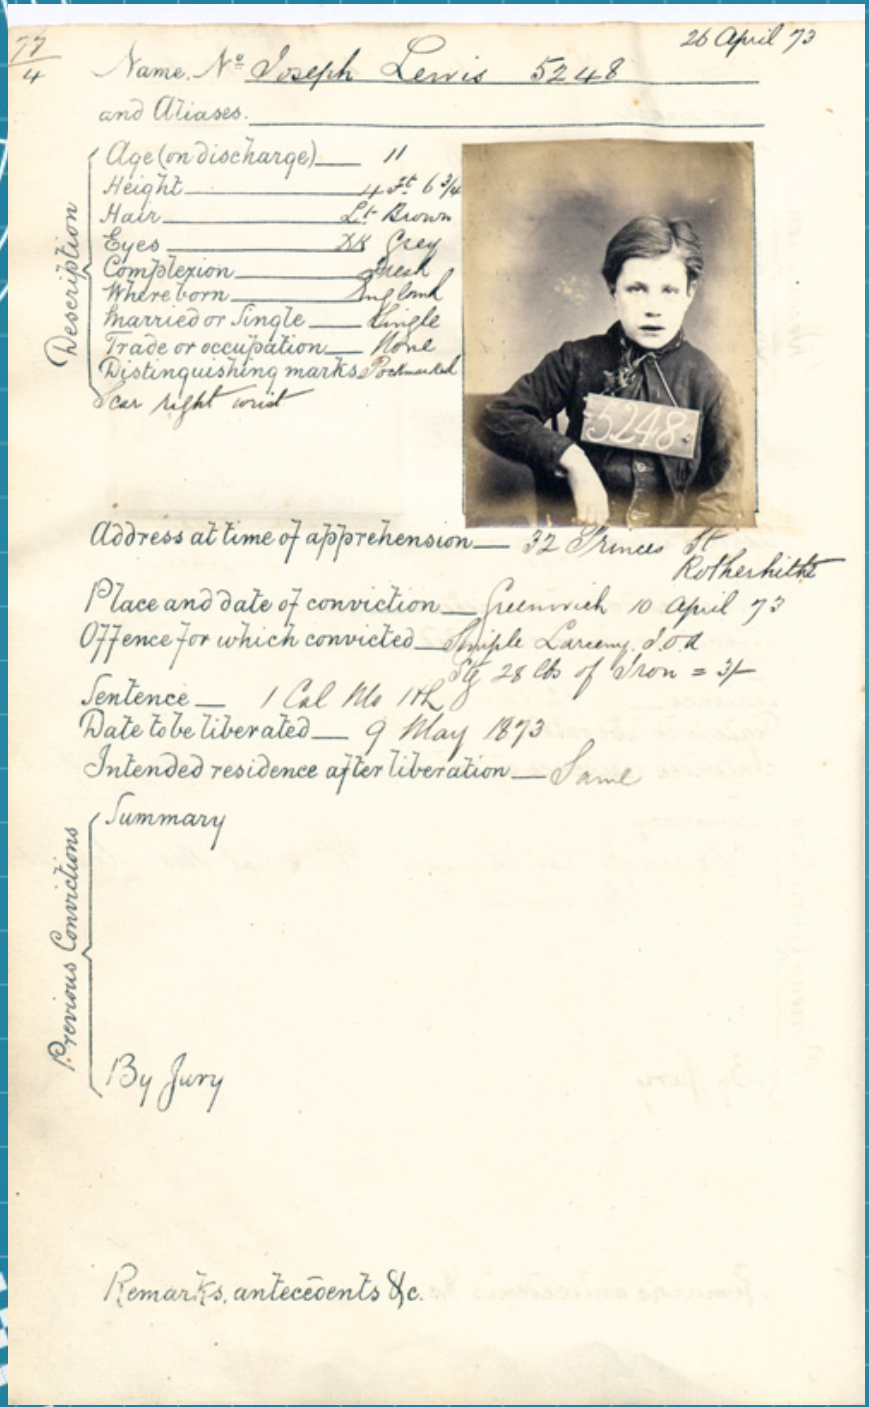 77/4
26 April 73
Name. Nº Joseph Lewis 5248
and Aliases.
Description
Age (on discharge) 11
Height 4 Ft 6 3/4
Hair Lt Brown
Eyes Dk Grey
Complexion Fresh
Where born England
Married or Single Single
Trade or occupation None
Distinguishing marks Pockmarked
Scar right wrist
5248
Address at time of apprehension 32 Princes St
Rotherhithe
Place and date of conviction Greenwich 10 April 73
Offence for which convicted Simple Larceny
Stg 28 lbs of Iron = 3/-
Sentence 1 Cal Mo
Date to be liberated 9 May 1873
Intended residence after liberation Same
Previous Convictions
Summary
By Jury
Remarks, antecedents &c.